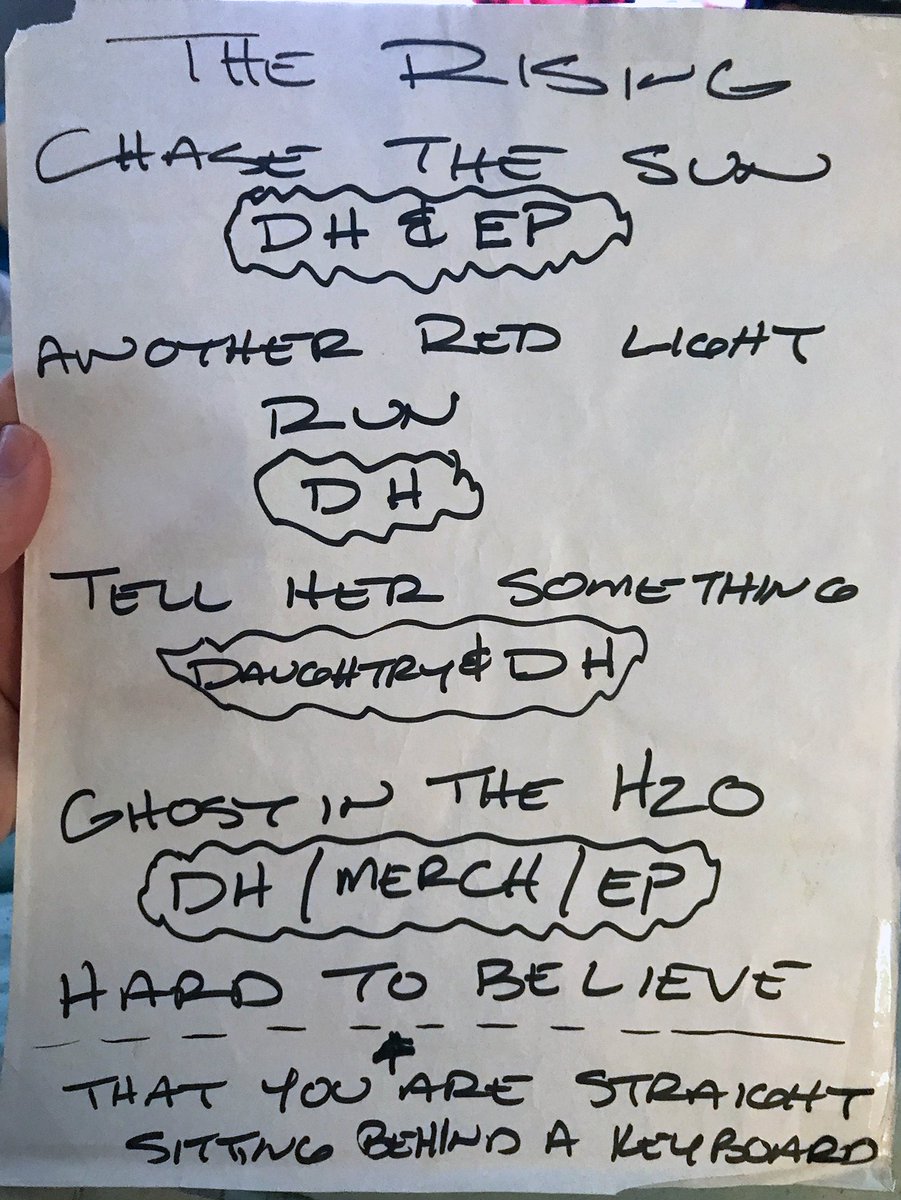 THE RISING
CHASE THE SUN
DH & EP
ANOTHER RED LIGHT
RUN
DH
TELL HER SOMETHING
DAUGHTRY & DH
GHOST IN THE H2O
DH / MERCH / EP
HARD TO BELIEVE
THAT YOU ARE STRAIGHT
SITTING BEHIND A KEYBOARD